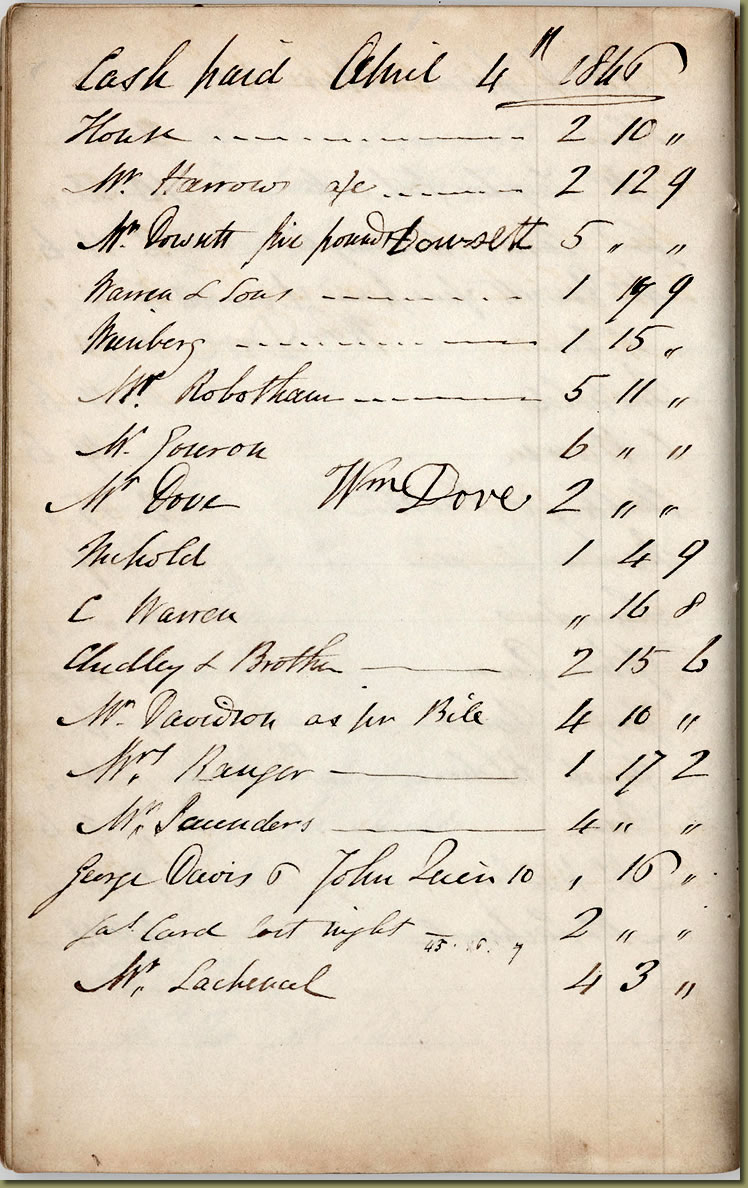 Cash paid April 4th 1846
House 2 10 "
Mr Harrow a/c 2 12 9
Mr Dowsett five pounds Dowsett 5 " "
Warren & Sons 1 17 9
Weinberg 1 15 "
Mr. Robotham 5 11 "
Mr Jouron 6 " "
Mr Dove Wm Dove 2 " "
Nickold 1 4 9
C Warren " 16 8
Chidley & Brother 2 15 6
Mr. Davidson as per Bill 4 10 "
Mrs Ranger 1 17 2
Mr. Saunders 4 " "
George Davis 6 John Quin 10 , 16 "
Jas Card last night 2 " "
Mr. Lachenal 4 3 "